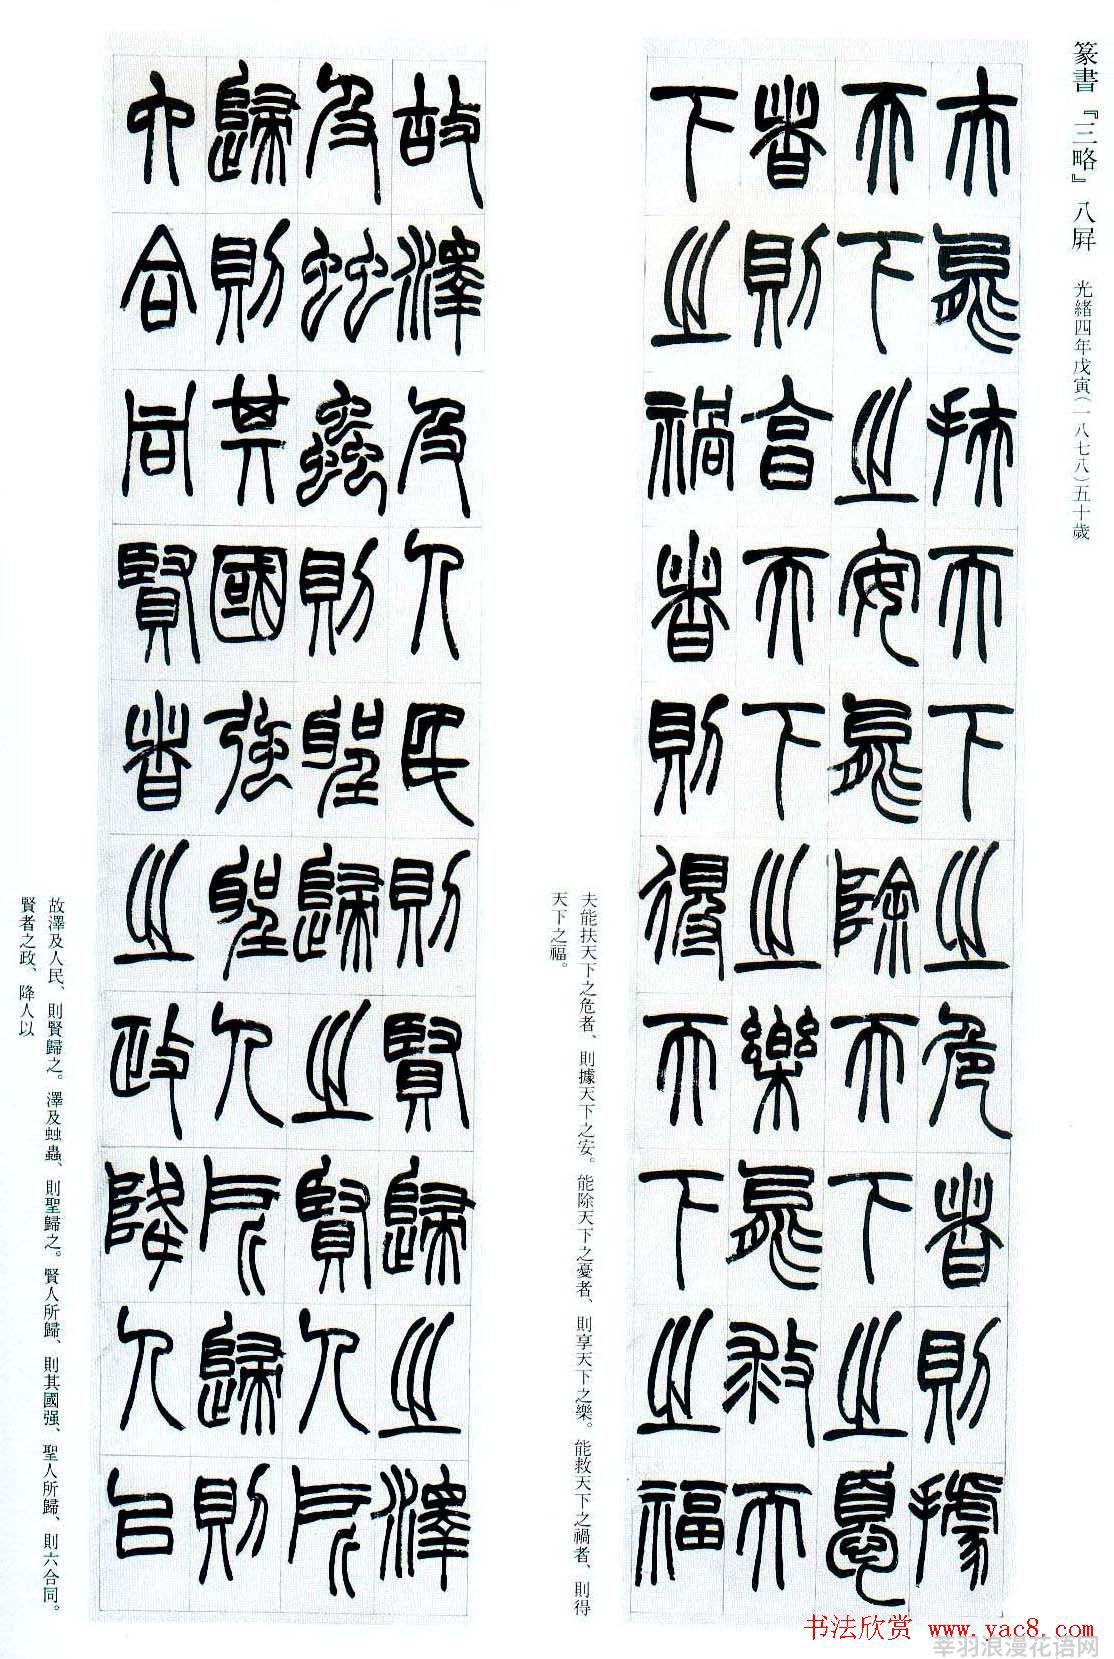 篆書『三略』八屏 光緒四年戊寅(一八七八)五十歲
夫能扶天下之危者則據
天下之安能除天下之憂
者則享天下之樂能救天
下之禍者則得天下之福
夫能扶天下之危者、則據天下之安。能除天下之憂者、則享天下之樂。能救天下之禍者、則得
天下之福。
故澤及人民則賢歸之澤
及䖵蟲則聖歸之賢人所
歸則其國強聖人所歸則
六合同賢者之政降人以
故澤及人民、則賢歸之。澤及䖵蟲、則聖歸之。賢人所歸、則其國强、聖人所歸、則六合同。
賢者之政、降人以
书法欣赏 www.yac8.com
莘羽浪漫花语网